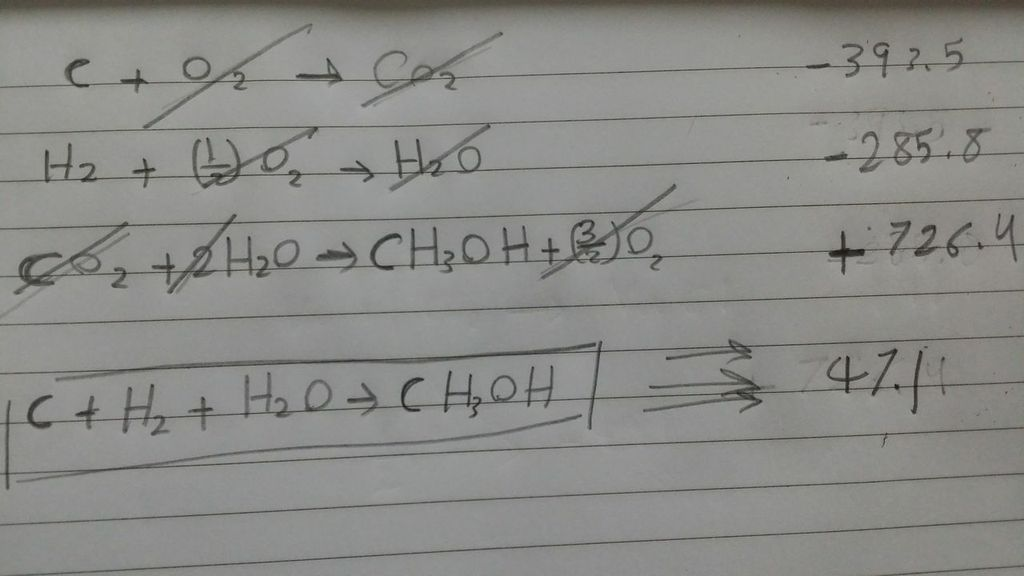 C + O₂ → CO₂ -393.5
H₂ + (1/2)O₂ → H₂O -285.8
CO₂ + 2H₂O → CH₃OH + (3/2)O₂ + 726.4
C + H₂ + H₂O → CH₃OH 47.1